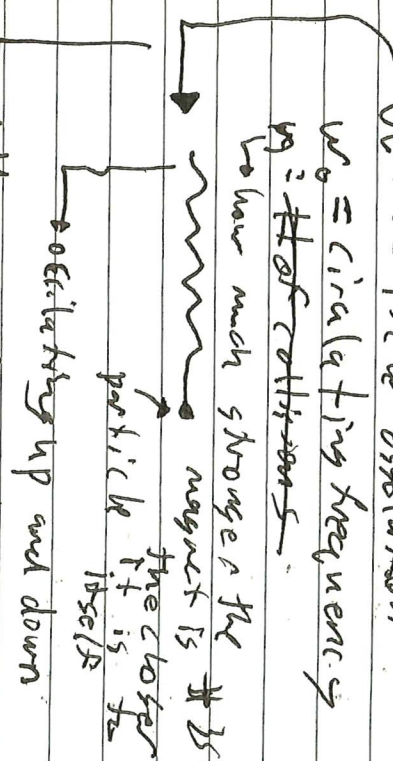 w₀ = circulating frequency
n = # of collisions
↳ how much stronger the
magnet is # is
the closer
it is to
particle itself
oscillating up and down